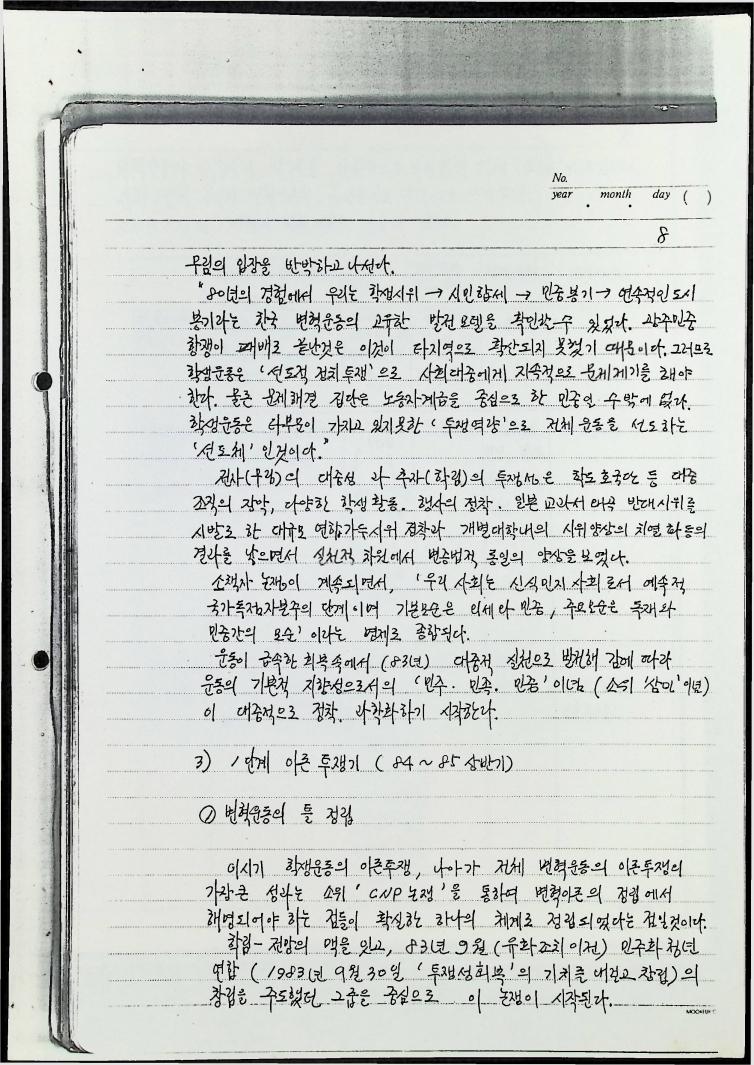 No.
year . month . day ( )
8
무림의 입장을 반박하고 나선다.
"80년의 경험에서 우리는 학생시위 → 시민합세 → 민중봉기 → 연속적인 도시
봉기라는 한국 변혁운동의 고유한 발전모델을 확인할수 있었다. 광주민중
항쟁이 패배로 끝난것은 이것이 타지역으로 확산되지 못했기 때문이다. 그러므로
학생운동은 '선도적 정치투쟁'으로 사회대중에게 지속적으로 문제제기를 해야
한다. 물론 문제해결 집단은 노동자계급을 중심으로 한 민중일 수밖에 없다.
학생운동은 타부문이 가지고 있지못한 '투쟁역량'으로 전체 운동을 선도하는
'선도체' 인것이다."
전사(무림)의 대중성 과 주자(학림)의 투쟁성은 학도호국단 등 대중
조직의 장악, 다양한 학생활동. 행사의 정착. 일본 교과서 왜곡 반대시위를
시발로 한 대규모 연합가두시위 정착과 개별대학내의 시위양상의 치열화 등의
결과를 낳으면서 실천적 차원에서 변증법적 통일의 양상을 보였다.
소책자 논쟁이 계속되면서, '우리 사회는 신식민지 사회로서 예속적
국가독점자본주의 단계이며 기본모순은 외세와 민중, 주요모순은 독재와
민중간의 모순' 이라는 명제로 종합된다.
운동이 급속한 회복속에서 (83년) 대중적 실천으로 발전해 감에 따라
운동의 기본적 지향성으로서의 '민주. 민족. 민중' 이념 (소위 '삼민'이념)
이 대중적으로 정착. 과학화하기 시작한다.
3) 1단계 이론 투쟁기 ( 84 ~ 85 상반기)
① 변혁운동의 틀 정립
이시기 학생운동의 이론투쟁, 나아가 전체 변혁운동의 이론투쟁의
가장큰 성과는 소위 ' CNP 논쟁 '을 통하여 변혁이론의 정립에서
해명되어야 하는 점들이 확실한 하나의 체계로 정립되었다는 점일것이다.
학림 - 전망의 맥을 잇고, 83년 9월 (유화조치이전) 민주화 청년
연합 ( 1983년 9월 30일 '투쟁성회복'의 기치를 내걸고 창립)의
창립을 주도했던 그룹을 중심으로 이 논쟁이 시작된다.